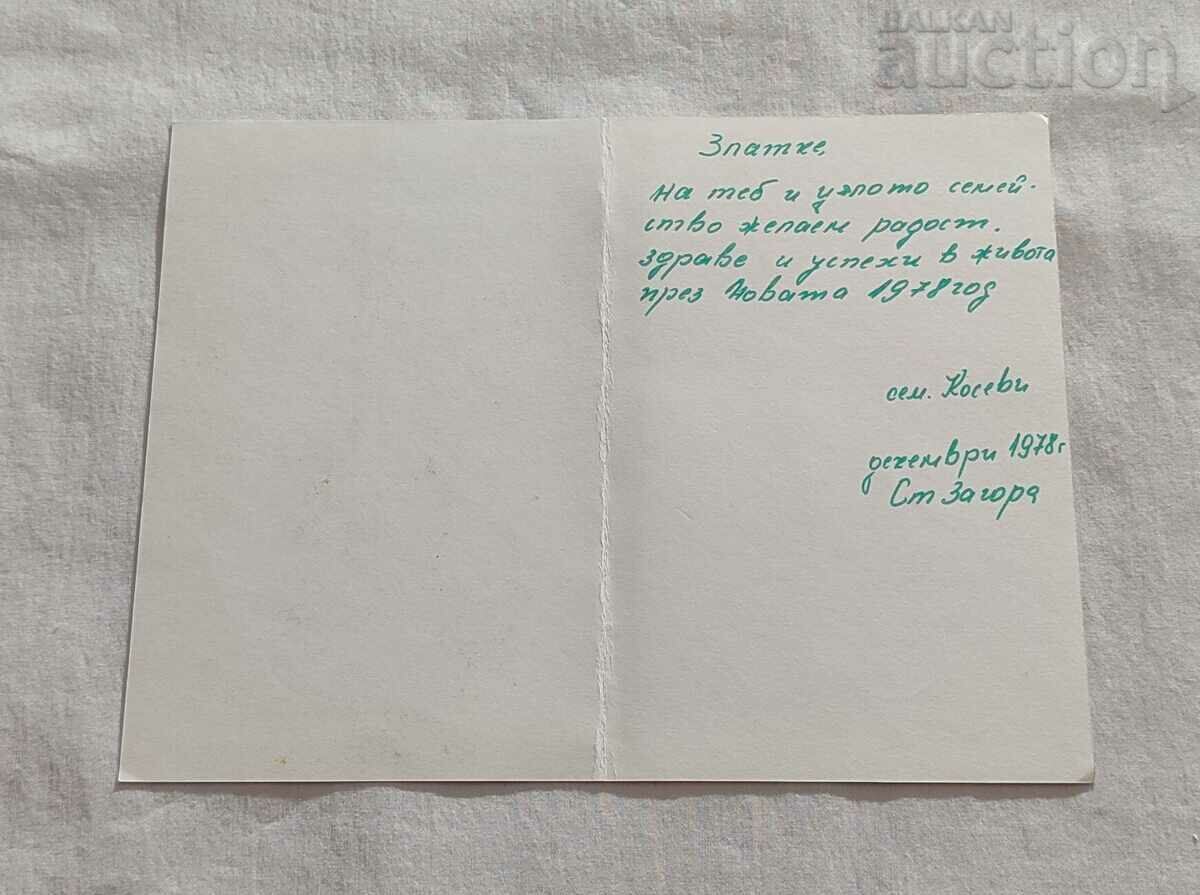 BALKAN
auction
Златке,
на теб и цялото семей-
ство желаем радост.
здраве и успехи в живота
през Новата 1978 год
сем. Косеви
декември 1978 г
Ст Загора